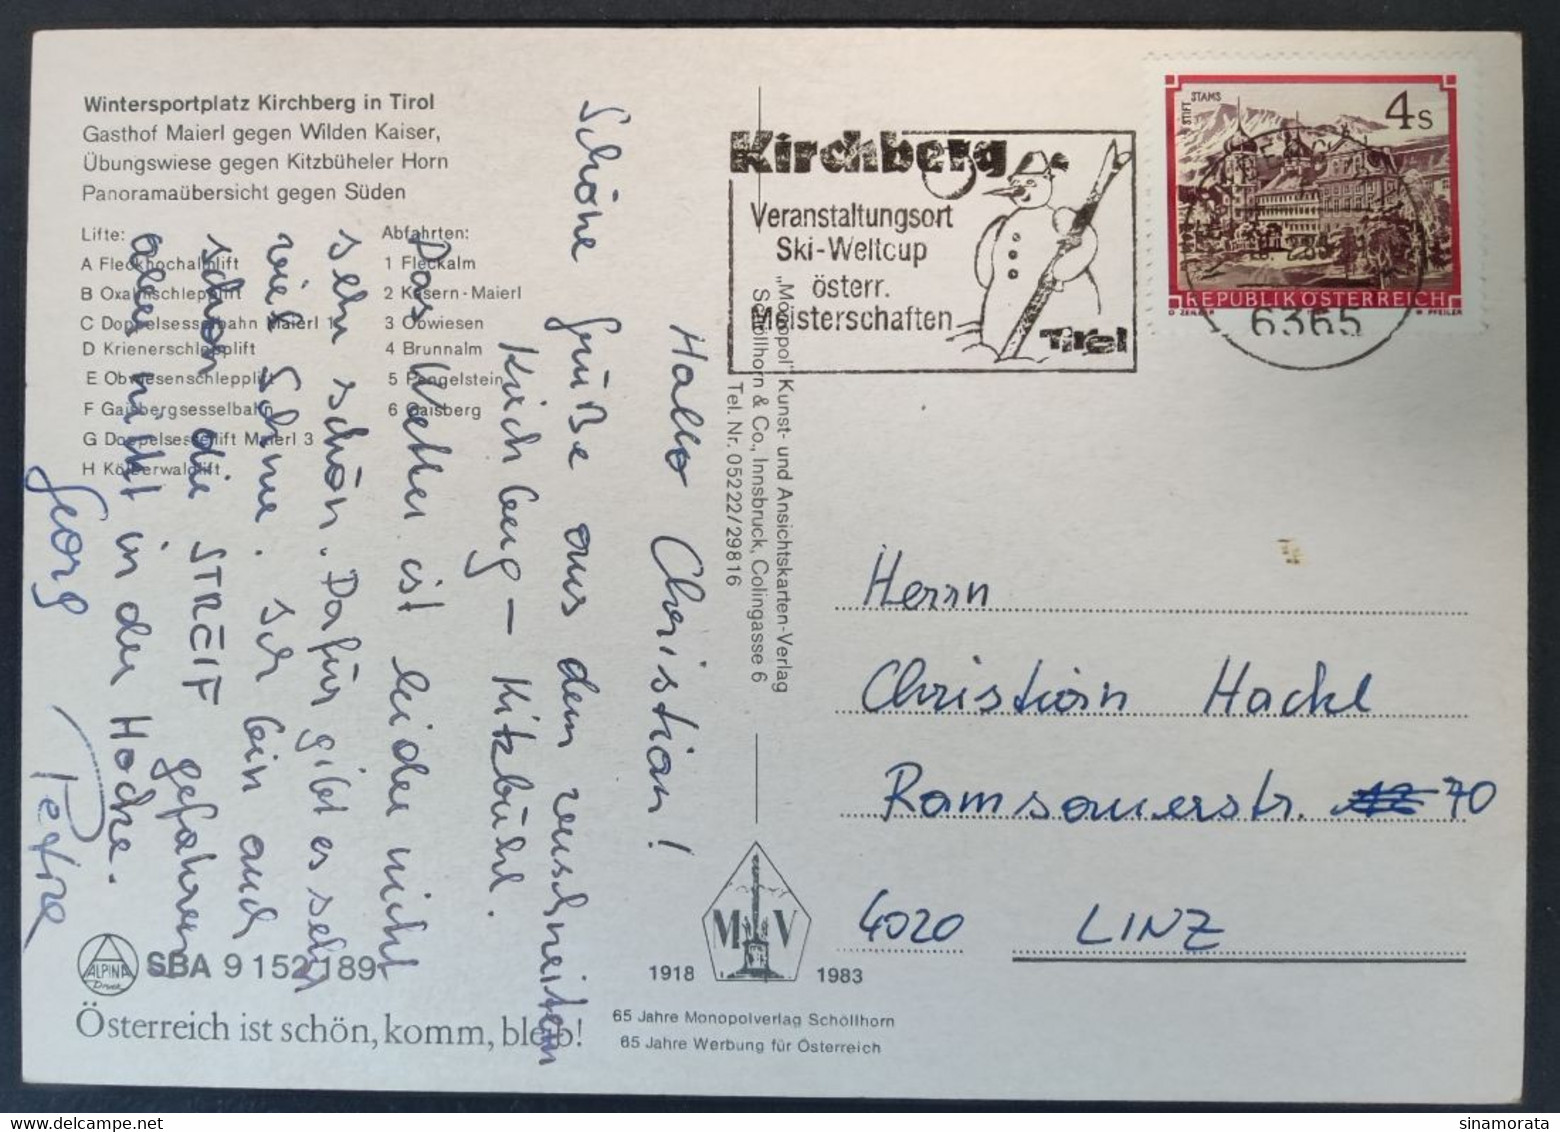 Wintersportplatz Kirchberg in Tirol
Gasthof Maierl gegen Wilden Kaiser,
Übungswiese gegen Kitzbüheler Horn
Panoramaübersicht gegen Süden
Lifte:
A Fleckhochalmlift
B Oxalmschlepplift
C Doppelsesselbahn Maierl 1
D Krienerschlepplift
E Obwiesenschlepplift
F Gaisbergsesselbahn
G Doppelsessellift Maierl 3
H Kölberwaldlift
Abfahrten:
1 Fleckalm
2 Kasern-Maierl
3 Obwiesen
4 Brunnalm
5 Pengelstein
6 Gaisberg
Hallo Christian!
Schöne Grüße aus dem verschneiten
Kirchberg - Kitzbühl.
Das Wetter ist leider nicht
sehr schön. Dafür gibt es sehr
viel Schnee. Ich bin auch
schon die STREIF gefahren
aber nicht in der Hocke.
Georg Petra
ALPINA
Druck
SBA 9 152 189
Österreich ist schön, komm, bleib!
"Monopol" Kunst- und Ansichtskarten-Verlag
Schöllhorn & Co., Innsbruck, Colingasse 6
Tel. Nr. 05222/29816
M V
1918 1983
65 Jahre Monopolverlag Schöllhorn
65 Jahre Werbung für Österreich
Kirchberg
Veranstaltungsort
Ski-Weltcup
österr.
Meisterschaften
Tirol
STIFT STAMS
4 S
REPUBLIK ÖSTERREICH
W. PFEILER
6365
Herrn
Christian Hackl
Ramsauerstr. 70
4020 LINZ
sinamorata